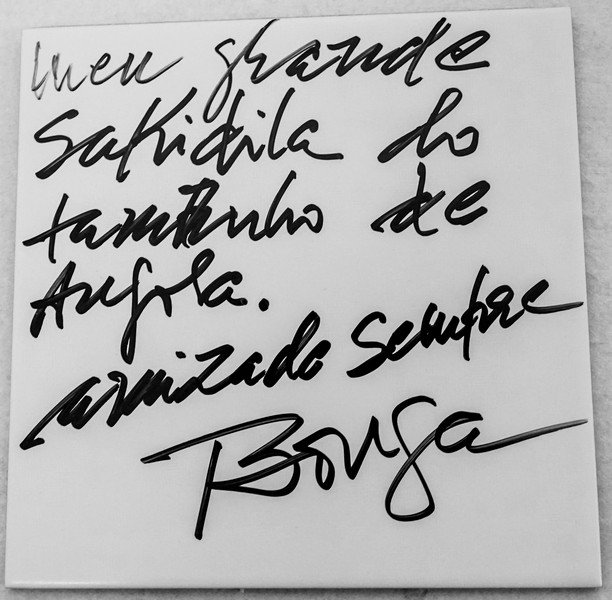 Meu grande
Sakidila do
tamanho de
Angola.
amizade sempre
Bonga